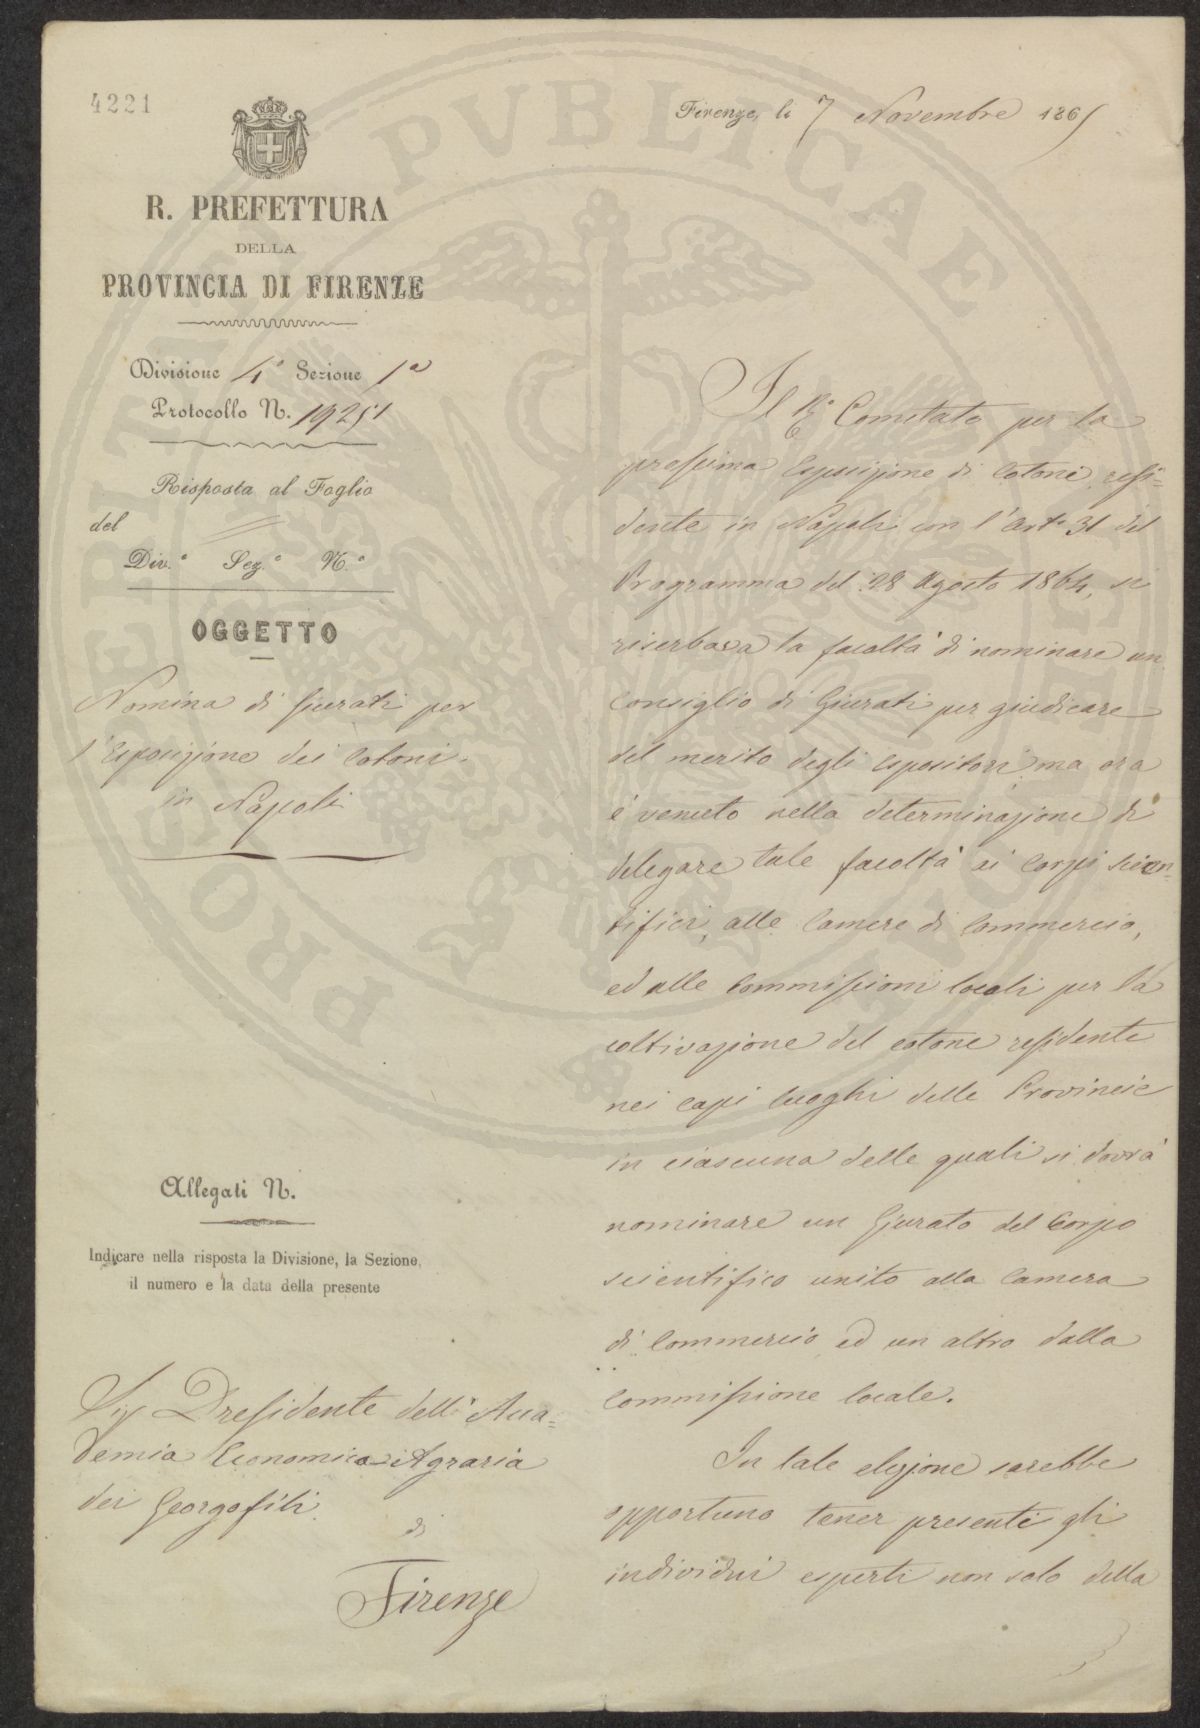 4221
Firenze, li 7 Novembre 1865
R. PREFETTURA
DELLA
PROVINCIA DI FIRENZE
Divisione 4ª Sezione 1ª
Protocollo N. 19251
Risposta al Foglio
del
Div.e Sez.e N.o
OGGETTO
Nomina di Giurati per
l'Esposizione dei Cotoni
in Napoli
Allegati N.
Indicare nella risposta la Divisione, la Sezione,
il numero e la data della presente
Sig Presidente dell'Acca=
demia Economico-Agraria
dei Georgofili
di
Firenze
Il R.o Comitato per la
prossima Esposizione di Cotoni resi=
dente in Napoli con l'Art.o 31 del
Programma del 28 Agosto 1864, si
riserbava la facoltà di nominare un
Consiglio di Giurati per giudicare
del merito degli espositori ma ora
è venuto nella determinazione di
delegare tale facoltà ai Corpi scien=
tifici, alle Camere di Commercio,
ed alle Commissioni locali per la
coltivazione del cotone residente
nei capi luoghi delle Provincie
in ciascuna delle quali si dovrà
nominare un Giurato del Corpo
scientifico unito alla Camera
di Commercio ed un altro dalla
Commissione locale.
In tale elezione sarebbe
opportuno tener presenti gli
individui esperti non solo della
PROSPERITATIS PVBLICAE